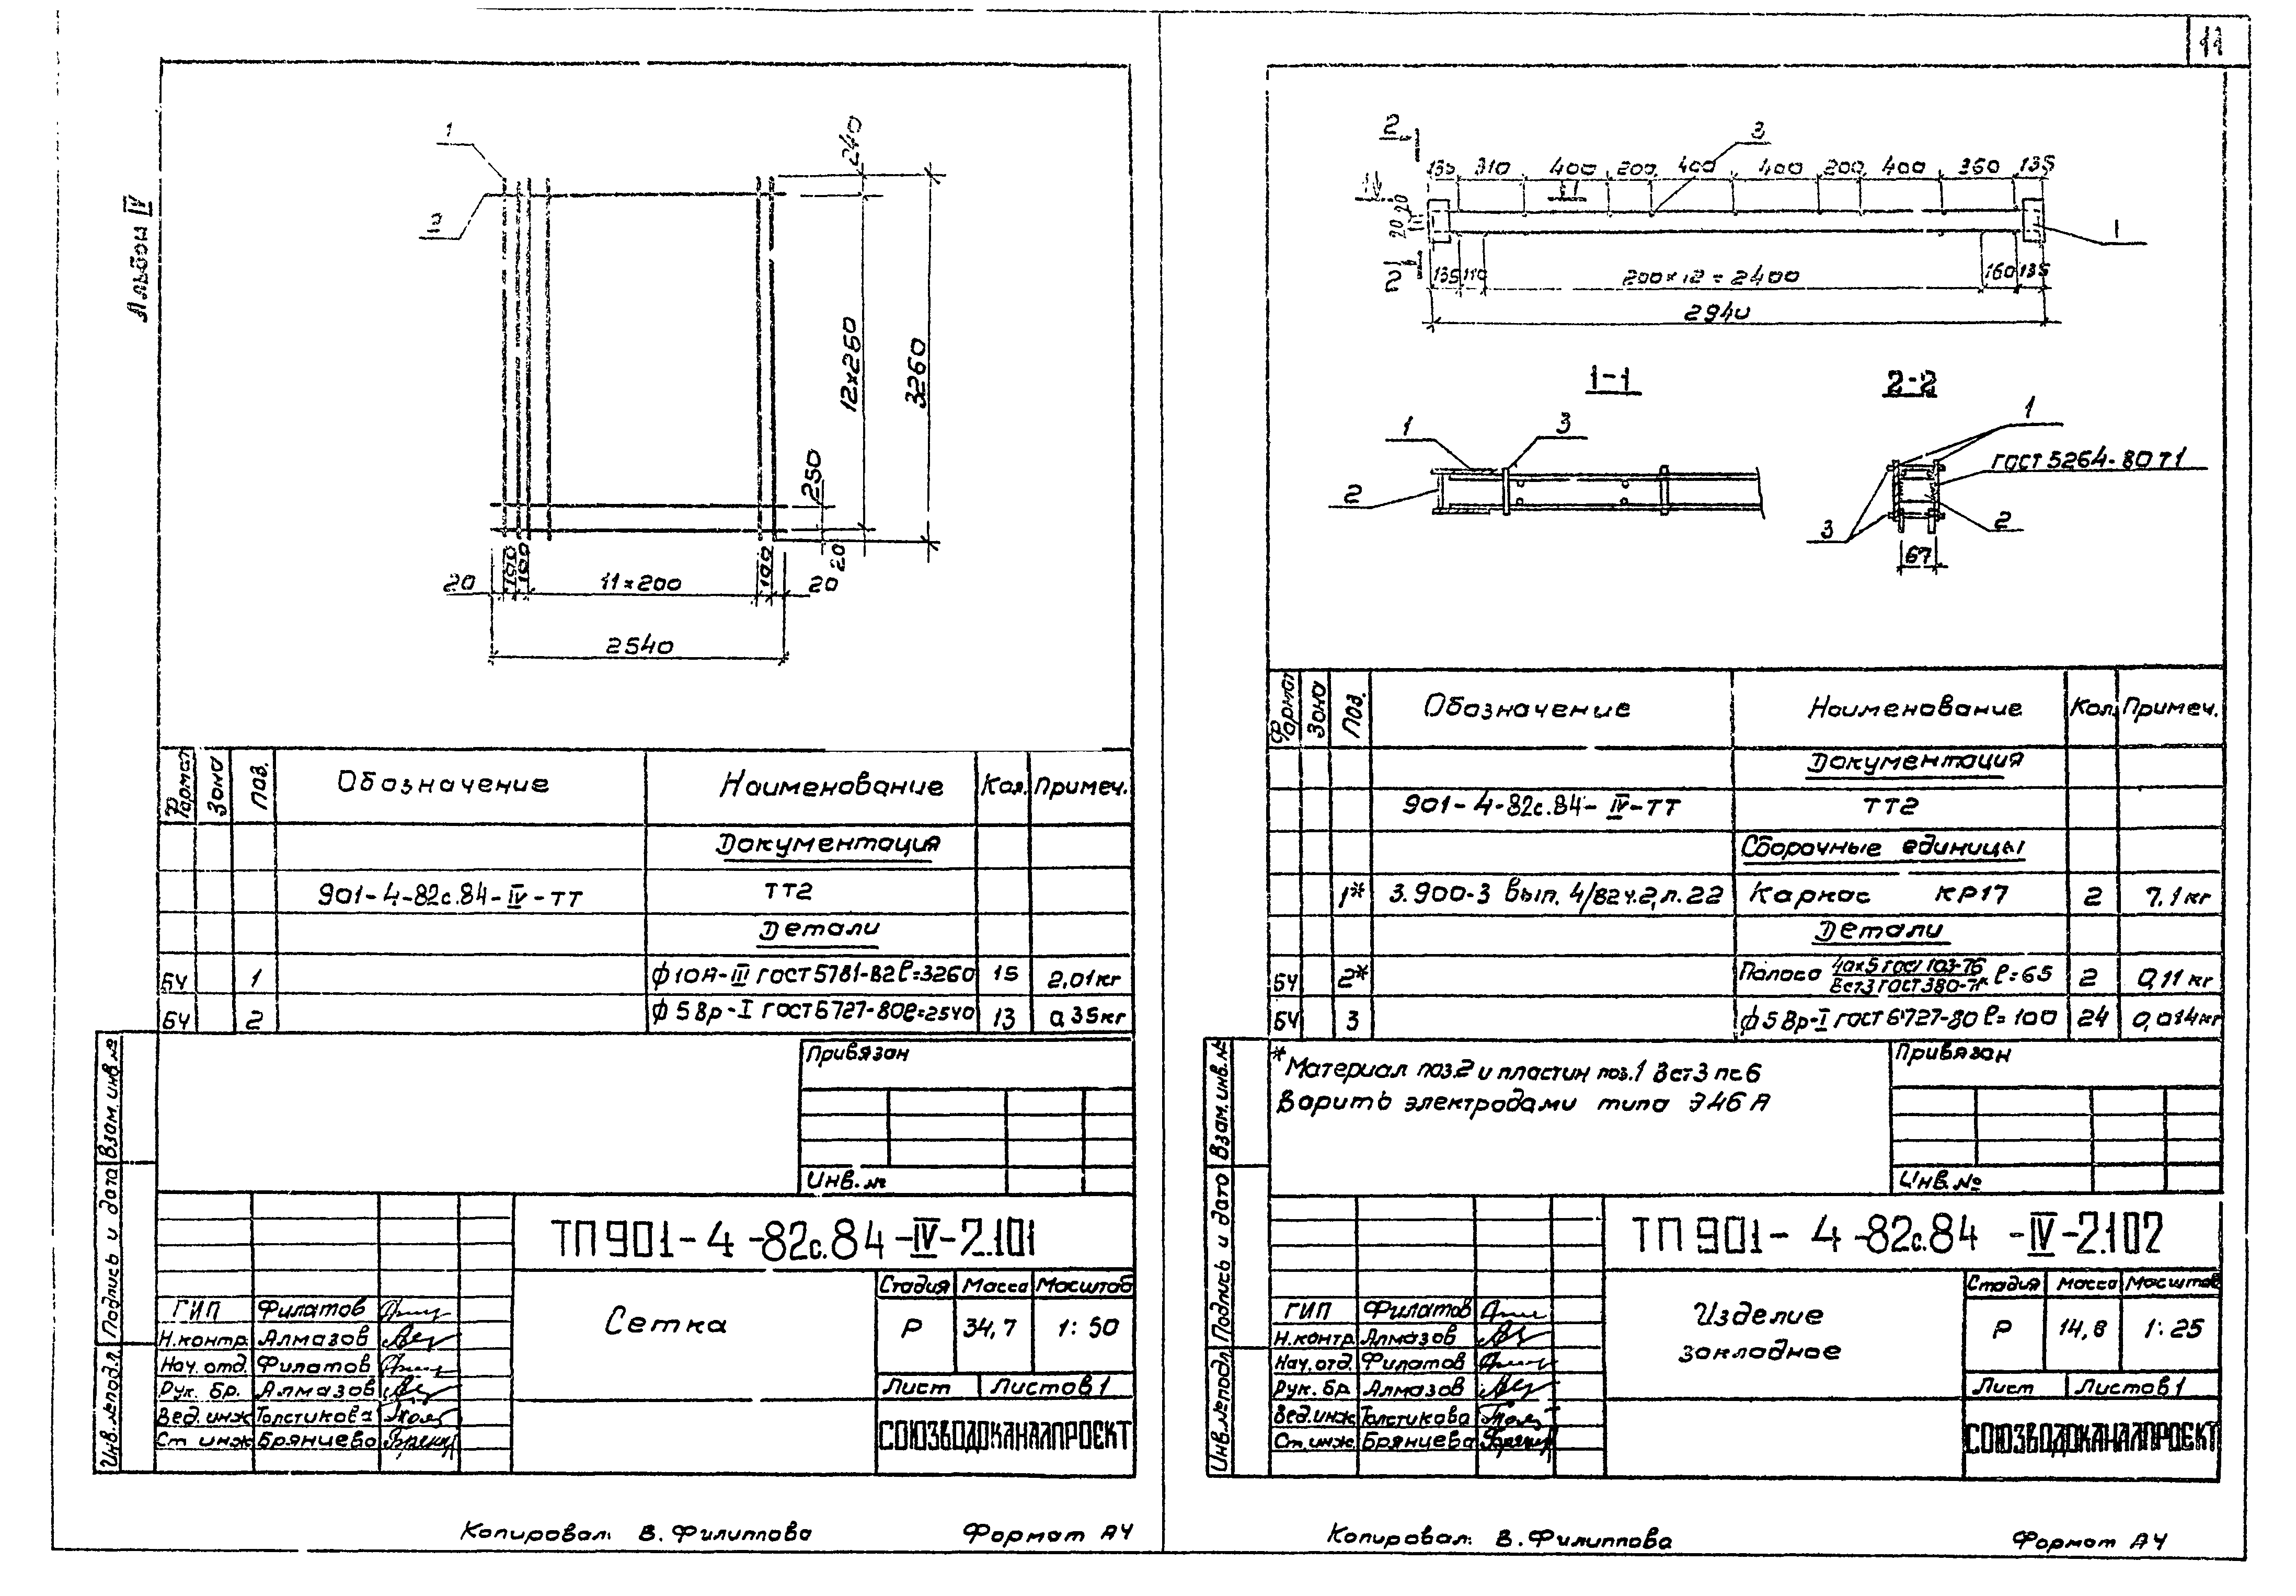 11
Альбом IV
1
2
240
12×260
3260
250
20
20
100
100
11×200
100
20
2540
Формат
Зона
Поз.
Обозначение
Наименование
Кол.
Примеч.
Документация
901-4-82с.84-IV-ТТ
ТТ2
Детали
БЧ
1
ϕ10А-III ГОСТ 5781-82 ℓ=3260
15
2,01кг
БЧ
2
ϕ5Вр-I ГОСТ 6727-80 ℓ=2540
13
0,35кг
Привязан
Инв.№
Взам.инв.№
Подпись и дата
Инв.№подл.
ТП 901-4-82с.84-IV-2.101
Сетка
Стадия
Масса
Масштаб
Р
34,7
1:50
Лист
Листов 1
СОЮЗВОДОКАНАЛПРОЕКТ
ГИП Филатов
Н.контр. Алмазов
Нач.отд. Филатов
Рук. бр. Алмазов
Вед.инж Толстикова
Ст инж Брянцева
Копировал: В.Филиппова
Формат А4
2
3
135 310 400 200 400 400 200 400 360 135
20
20
1
2
135 110 200×12=2400 160 135
2940
1-1
1
3
2
2-2
1
ГОСТ 5264-80 Т1
2
3
67
Формат
Зона
Поз.
Обозначение
Наименование
Кол.
Примеч.
Документация
901-4-82с.84-IV-ТТ
ТТ2
Сборочные единицы
1*
3.900-3 Вып.4/82 ч.2, л.22
Каркас КР17
2
7.1кг
Детали
БЧ
2*
Полоса 40×5 ГОСТ 103-76 ℓ=65
2
0,11кг
БЧ
3
ϕ5Вр-I ГОСТ 6727-80 ℓ=100
24
0,014кг
*Материал поз.2 и пластин поз.1 Вст3пс6
Варить электродами типа Э46А
Привязан
Инв.№
Взам.инв.№
Подпись и дата
Инв.№подл.
ТП 901-4-82с.84-IV-2.102
Изделие
закладное
Стадия
Масса
Масштаб
Р
1:25
Лист
Листов 1
СОЮЗВОДОКАНАЛПРОЕКТ
ГИП Филатов
Н.контр. Алмазов
Нач.отд. Филатов
Рук. бр. Алмазов
Вед.инж Толстикова
Ст.инж. Брянцева
Копировал: В.Филиппова
Формат А4